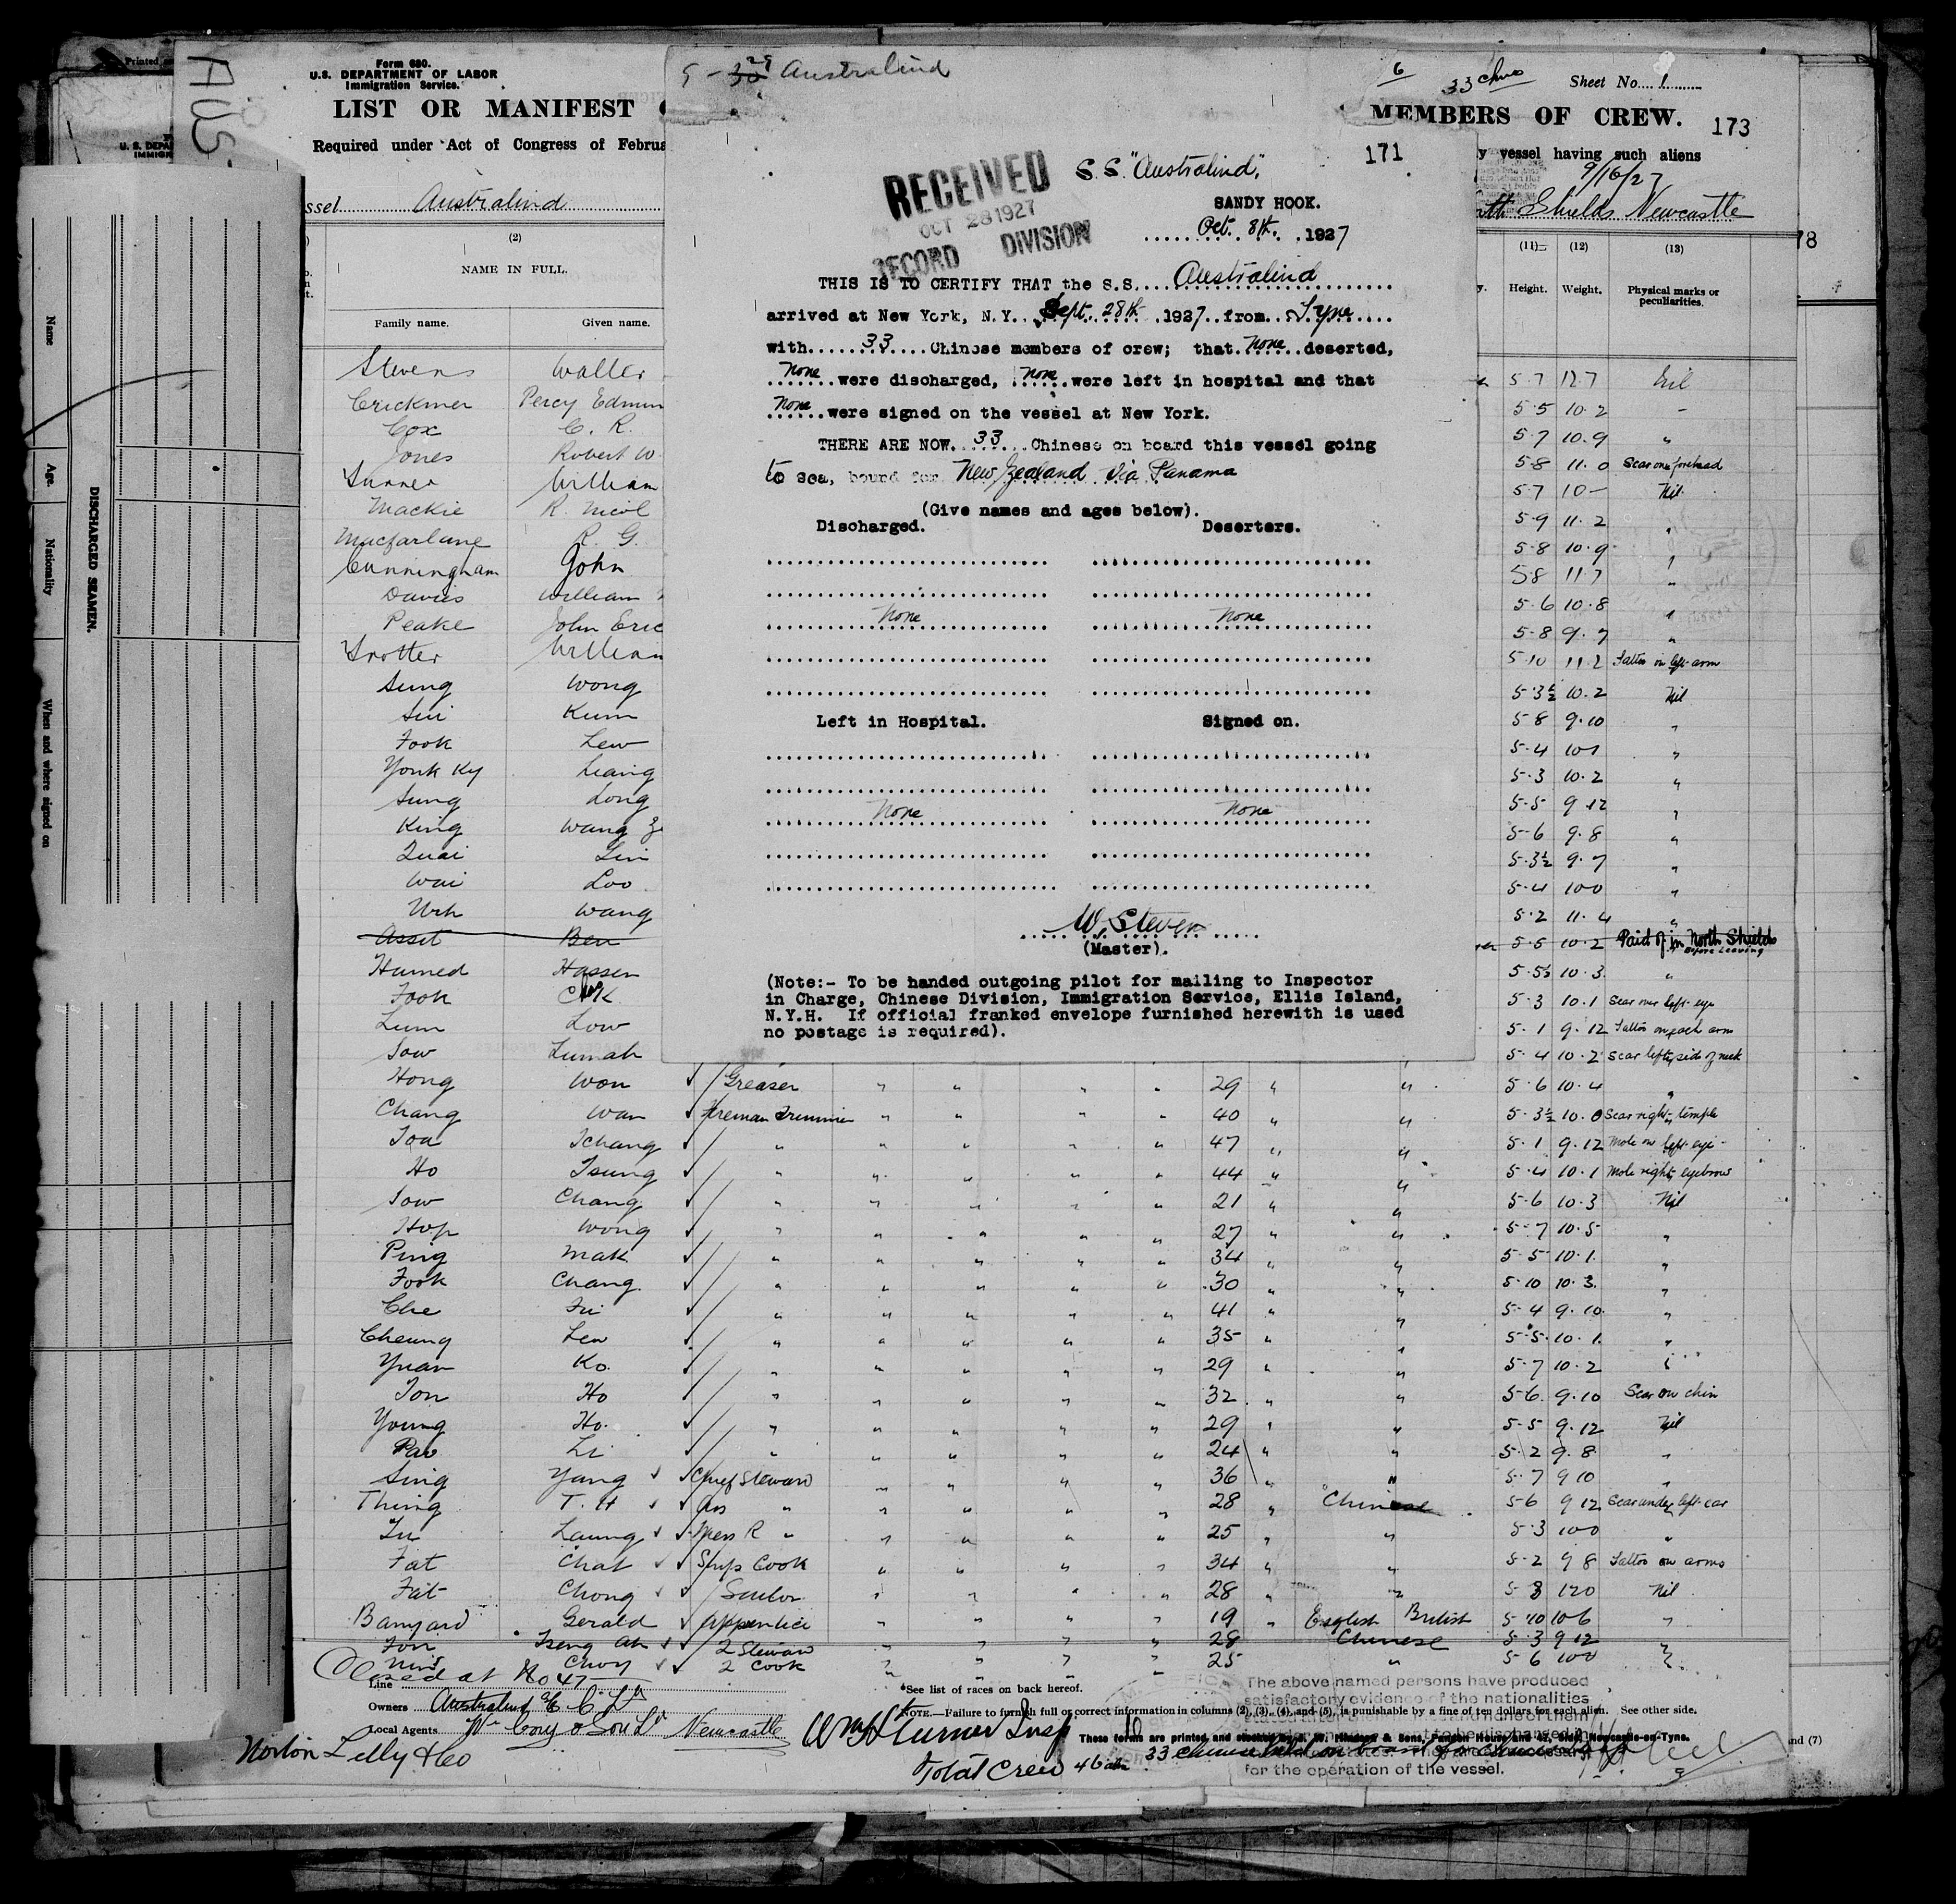 Form 680.
U.S. DEPARTMENT OF LABOR
Immigration Service.
LIST OR MANIFEST
Required under Act of Congress of Februa
Australind
(2)
NAME IN FULL.
Family name. Given name.
Stevens Walter
Crickmer Percy Edmun
Cox C. R.
Jones Robert W.
Turner William
Mackie R. Nicol
Macfarlane R. G.
Cunningham John
Davies William
Peake John Eric
Trotter William
Sung Wong
Sui Kum
Fook Lew
Yonk Ky Leang
Sung Long
King Wang
Quai Lin
Wai Loo
Urh Wang
Asset Ben
Hamed Hassen
Fook
Lum Low
Sow Lumah
5 - 29 Australind
171
S.S. "Australind"
RECEIVED
OCT 28 1927
RECORD DIVISION
SANDY HOOK.
Oct. 8th. 1927
THIS IS TO CERTIFY THAT the S.S. Australind
arrived at New York, N.Y. Sept. 28th 1927 from Tyne
with 33 Chinese members of crew; that None deserted,
None were discharged, None were left in hospital and that
None were signed on the vessel at New York.
THERE ARE NOW 33 Chinese on board this vessel going
to sea, bound for New Zealand Via Panama
(Give names and ages below).
Discharged. Deserters.
None None
Left in Hospital. Signed on.
None None
W. Steven
(Master).
(Note:- To be handed outgoing pilot for mailing to Inspector
in Charge, Chinese Division, Immigration Service, Ellis Island,
N.Y.H. If official franked envelope furnished herewith is used
no postage is required).
6
Sheet No. 1
MEMBERS OF CREW. 173
y vessel having such aliens
9/16/27
Shields Newcastle
(11) (12) (13)
Height. Weight. Physical marks or
peculiarities.
5 7 12.7 Nil
5 5 10.2 -
5 7 10.9 "
5-8 11.0 Scar on forehead
5-7 10- Nil
5-9 11.2 "
5-8 10.9 "
5 8 11.7 "
5-6 10.8 "
5-8 9.7 "
5-10 11.2 Tattoo on left arm
5-3½ 10.2 Nil
5 8 9.10 "
5-4 "
5-3 10.2 "
5-5 9 12 "
5-6 9.8 "
5-3½ 9.7 "
5-4 100 "
5-2 11.4 "
5-5 10.2 Paid off in North Shields
Before Leaving
10.3 "
5-3 10.1 Scar over left eye
5-1 9.12 Tattoo on each arm
5-4 10.2 Scar left side of neck
Hong Won Greaser " " " " 29 " " 5-6 10.4 "
Chang Wan Fireman Trimmer " " " " 40 " " 5-3½ 10.0 Scar right temple
Toa Tchang " " " " " 47 " " 5-1 9.12 Mole on left eye
Ho Tsung " " " " " 44 " " 5-4 10.1 Mole right eyebrow
Sow Chang " " " " " 21 " " 5-6 10.3 Nil
Hop Wong " " " " " 27 " " 5-7 10.5 "
Ping Mak " " " " " 34 " " 5-5 10.1 "
Fook Chang " " " " " 30 " " 5-10 10.3 "
Che Fu " " " " " 41 " " 5-4 9.10 "
Cheung Lew " " " " " 35 " " 5-5 10.1 "
Yuan Ko " " " " " 29 " " 5-7 10.2
Ton Ho " " " " " 32 " " 5-6 9.10 Scar on chin
Young Ho " " " " " 29 " " 5-5 9.12 Nil
Pao Li " " " " " 24 " " 5-2 9.8 "
Sing Yang Chief Steward " " " " 36 " " 5-7 9 10 "
Thing T. H " " " " " 28 " Chinese 5-6 9 12 Scar under left ear
Laung Mess R " " " " " 25 " " 5-3 100 "
Fat Chat Ships Cook " " " " 34 " " 5-2 9 8 Tattoo on arms
Fat Chong Sailor " " " " 28 " " 5-8 120 Nil
Banyard Gerald Apprentice " " " " 19 " English British 5-10 106 "
Fon Tseng Ah 2 Steward " " " " 28 Chinese 5-3 9 12 "
Choy 2 Cook " " " " 25 " 5 6 100 "
Closed at No 47
Line
Owners Australind
Local Agents Wm Cory & Son Ld Newcastle
Norton Lilly & Co
*See list of races on back hereof.
NOTE.—Failure to furnish full or correct information in columns (2), (3), (4), and (5), is punishable by a fine of ten dollars for each alien. See other side.
Turner Insp
Total Crew 46
The above named persons have produced
satisfactory evidence of the nationalities
for the operation of the vessel.
and (7)
Name
Age.
Nationality
When and where signed on
DISCHARGED SEAMEN.
78